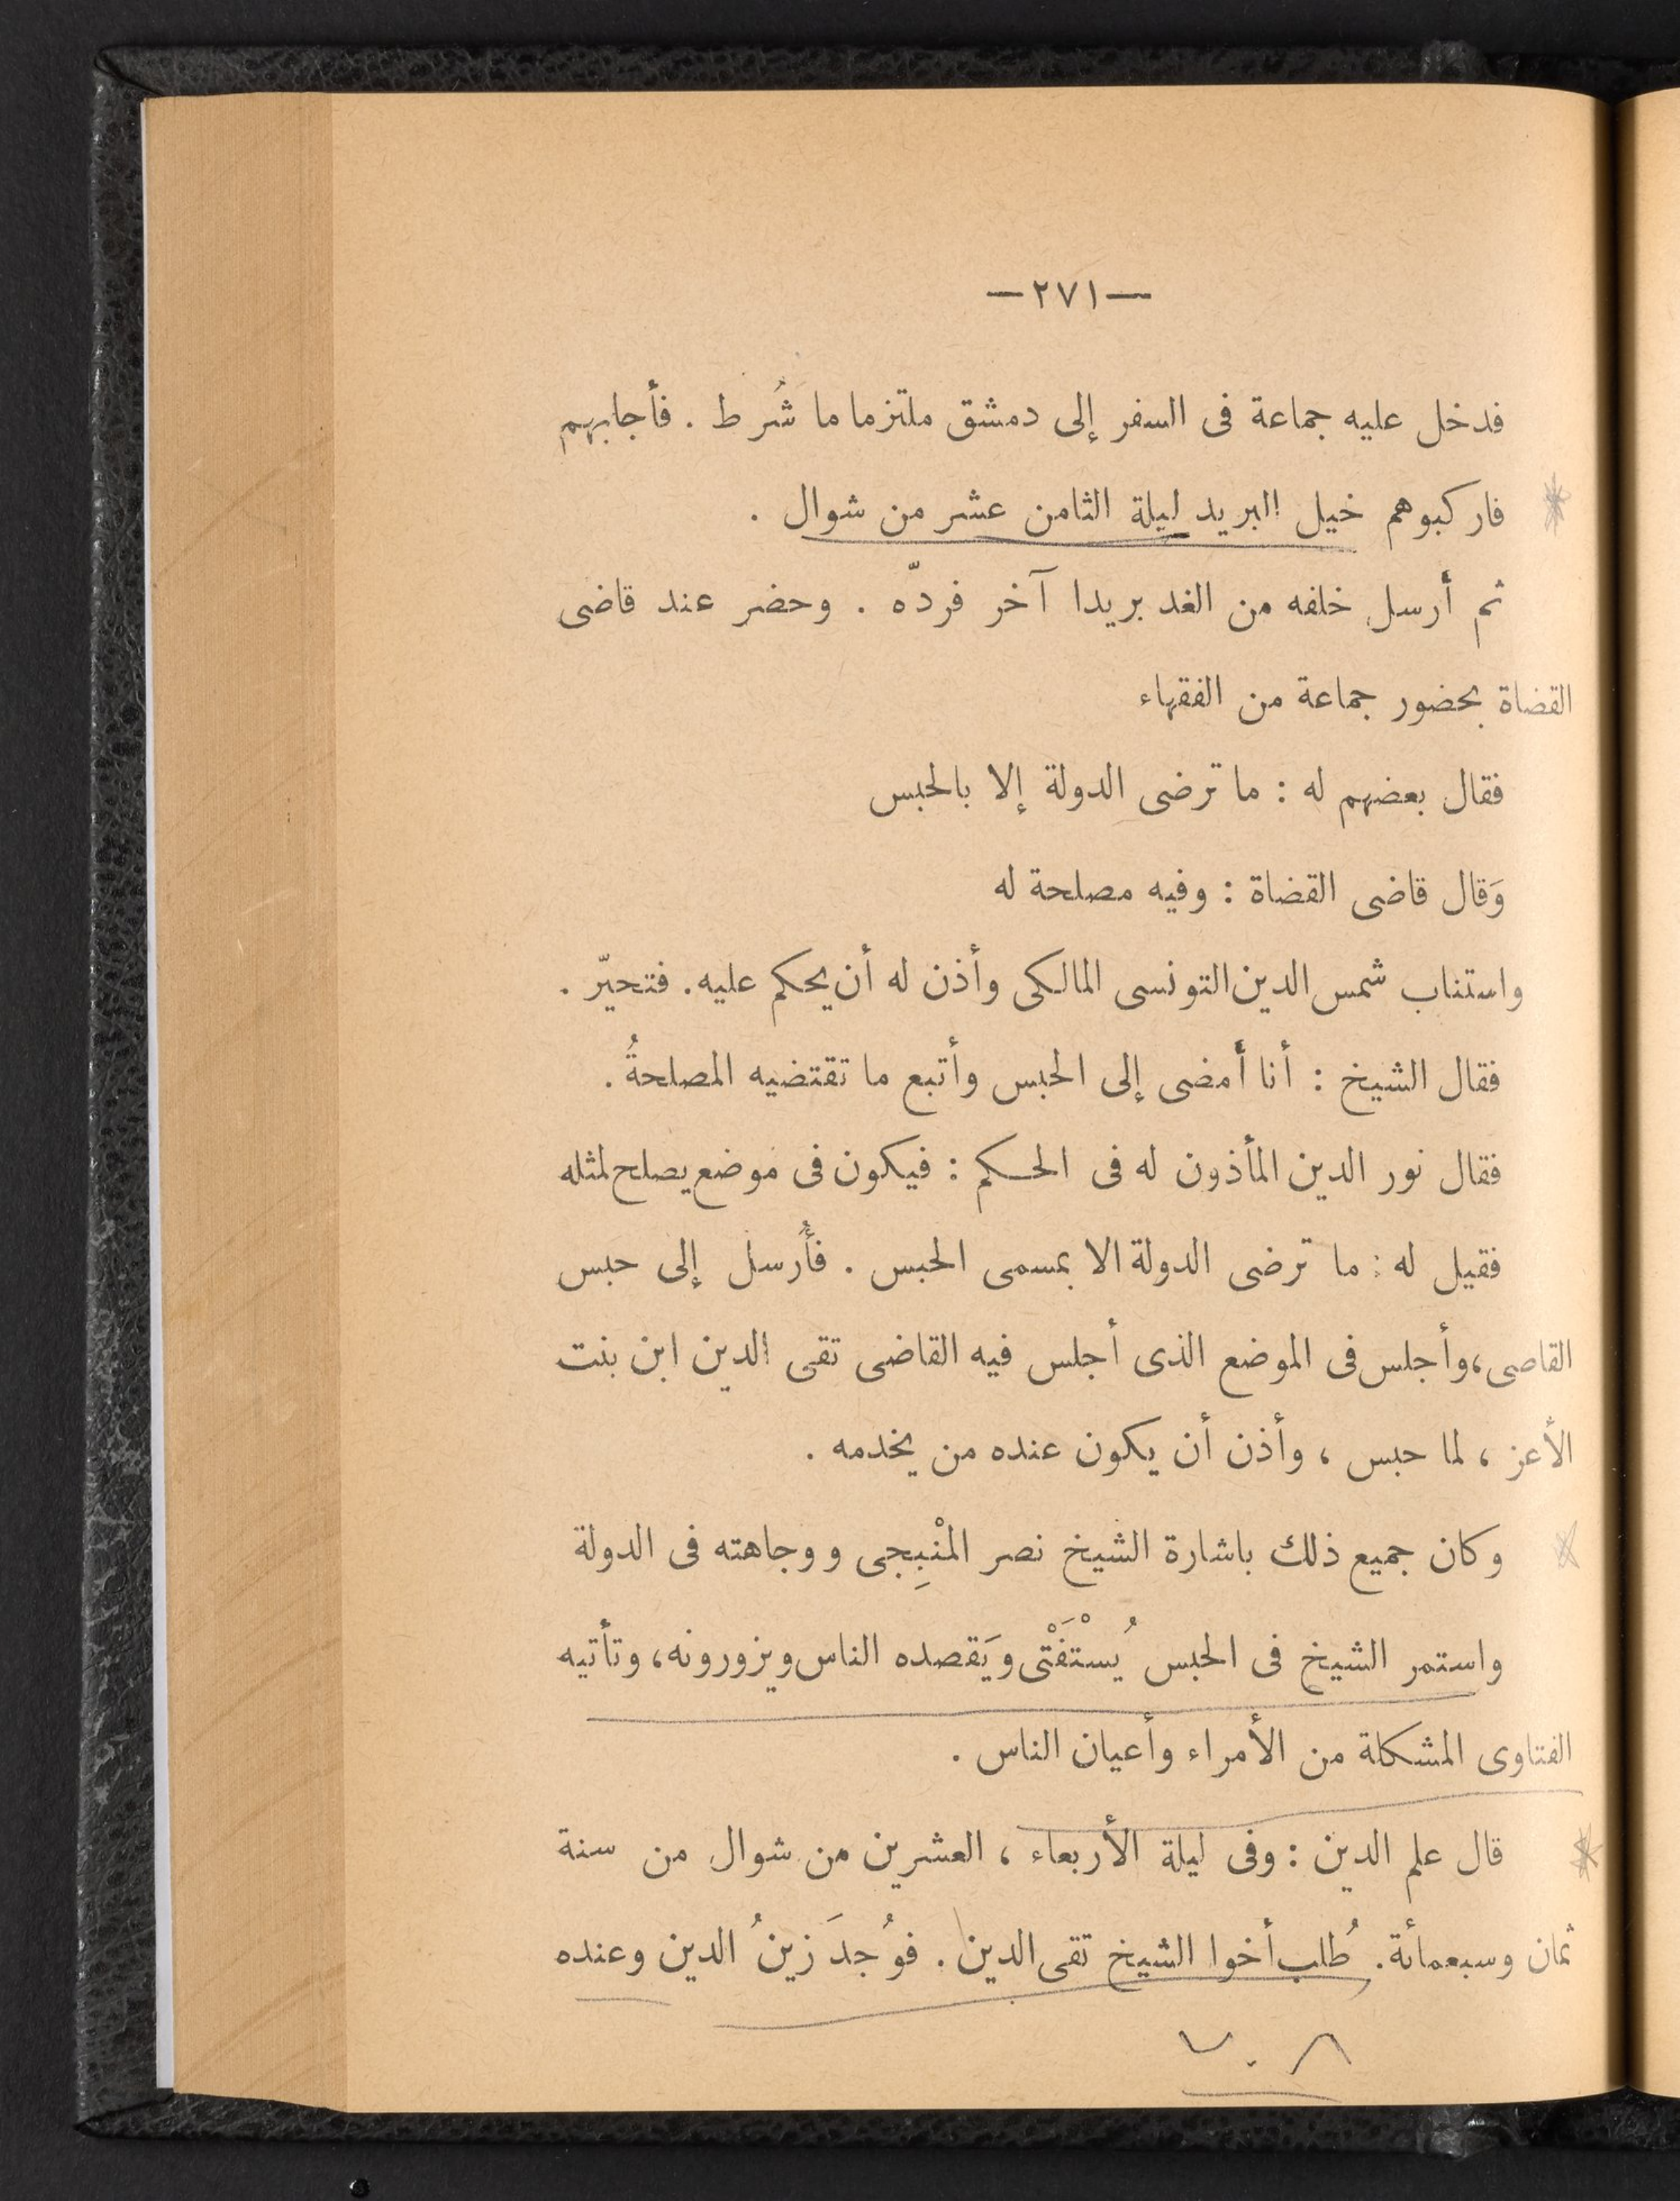 —٢٧١—
فدخل عليه جماعة فى السفر إلى دمشق ملتزما ما شُرط . فأجابهم
فاركبوهم خيل البريد ليلة الثامن عشر من شوال .
ثم أرسل خلفه من الغد بريدا آخر فردّه . وحضر عند قاضى
القضاة بحضور جماعة من الفقهاء
فقال بعضهم له : ما ترضى الدولة إلا بالحبس
وَقال قاضى القضاة : وفيه مصلحة له
واستناب شمس الدين التونسى المالكى وأذن له أن يحكم عليه . فتحيّر .
فقال الشيخ : أنا أمضى إلى الحبس وأتبع ما تقتضيه المصلحةُ .
فقال نور الدين المأذون له فى الحكم : فيكون فى موضع يصلح لمثله
فقيل له : ما ترضى الدولة الا بمسمى الحبس . فأُرسل إلى حبس
القاضى ، وأجلس فى الموضع الذى أجلس فيه القاضى تقى الدين ابن بنت
الأعز ، لما حبس ، وأذن أن يكون عنده من يخدمه .
وكان جميع ذلك باشارة الشيخ نصر المنْبِجى ووجاهته فى الدولة
واستمر الشيخ فى الحبس يُسْتَفْتَى وَيَقصده الناس ويزورونه ، وتأتيه
الفتاوى المشكلة من الأمراء وأعيان الناس .
قال علم الدين : وفى ليلة الأربعاء ، العشرين من شوال من سنة
ثمان وسبعمائة . طُلب أخوا الشيخ تقى الدين . فوُجدَ زينُ الدين وعنده
٧٠٨